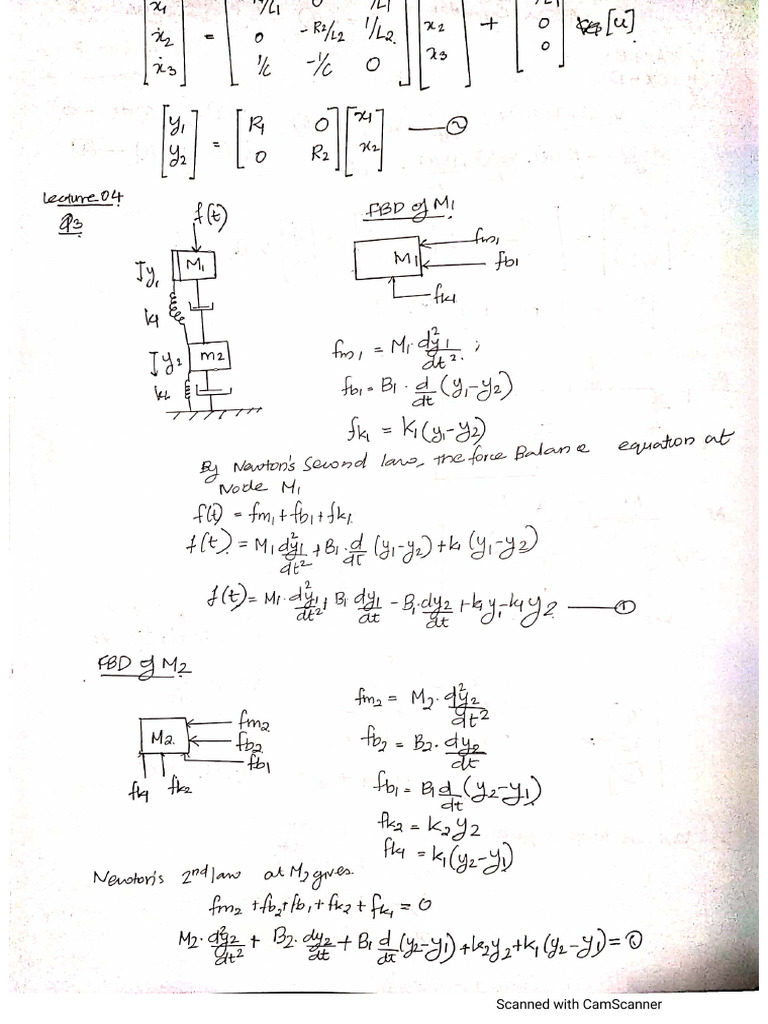 ẋ1 1/L1 0 1/L1 1/L1
ẋ2 = 0 -R2/L2 1/L2 x2 + 0 [u]
ẋ3 1/C -1/C 0 x3 0
y1 = R1 0 x1
y2 0 R2 x2 —②
Lecture 04
f(t)
FBD of M1
M1 y1 k1
m2 y2 k2
M1 fm1 fb1 fk1
fm1 = M1. d²y1/dt². ;
fb1 = B1 . d/dt (y1-y2)
fk1 = K1(y1-y2)
By Newton's Second law, the force Balance equation at
Node M1
f(t) = fm1 + fb1 + fk1
f(t) = M1 d²y1/dt² + B1. d/dt (y1-y2) + k1 (y1-y2)
f(t) = M1. d²y1/dt² + B1 dy1/dt - B1. dy2/dt + k1y1 - k1y2 —①
FBD of M2
M2. fm2 fb2 fb1 fk1 fk2
fm2 = M2. d²y2/dt²
fb2 = B2. dy2/dt
fb1 = B1 d/dt (y2-y1)
fk2 = k2y2
fk1 = k1(y2-y1)
Newton's 2nd law at M2 gives.
fm2 + fb2 + fb1 + fk2 + fk1 = 0
M2. d²y2/dt² + B2. dy2/dt + B1 d/dt (y2-y1) + k2y2 + k1 (y2-y1) = 0
Scanned with CamScanner